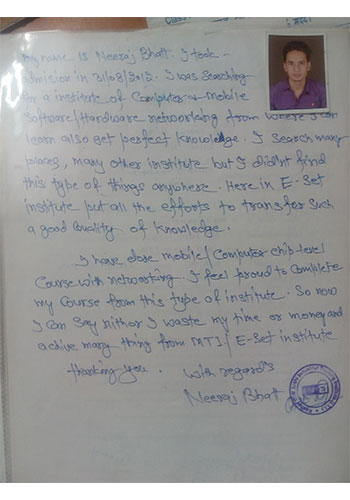 My name is Neeraj Bhatt. I took -
Admision in 31/08/2012. I was Searching
for a institute of Computer & Mobile
Software/Hardware networking from where I can
learn also get perfect knowledge. I search many
places, many other institute but I didn't find
this type of things anywhere. Here in E-Set
institute put all the efforts to transfer such
a good Quality of Knowledge.
I have done mobile/Computer chip-level
Course with networking. I feel proud to complete
my Course from this type of institute. So now
I can Say nithor I waste my time or money and
achive many thing from MTI/E-Set institute
thanking you. with regard's
Neeraj Bhatt